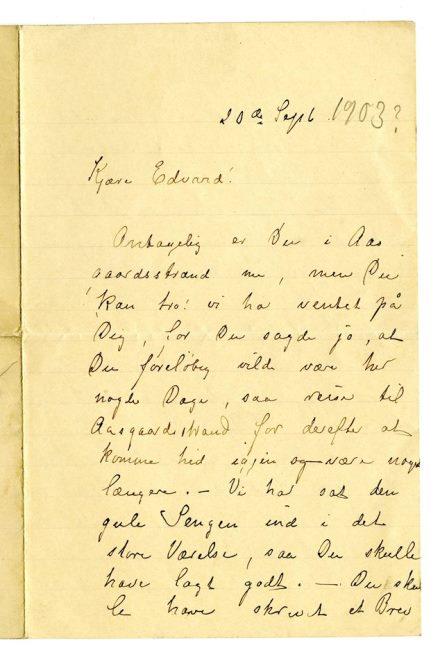 20de Sept 1903?
Kjære Edvard!
Antagelig er Du i Aas
gaardsstrand nu, men Du
kan tro! vi ha ventet på
Dig, for Du sagde jo, at
Du foreløbig vilde være her
nogle Dage, saa reise til
Aasgaardsstrand for derefter at
komme hid igjen og være nogle
længere. – Vi har sat den
gule Sengen ind i det
store Værelse, saa Du skulle
have lagt godt. – Du skul
le have skrevet et Brev